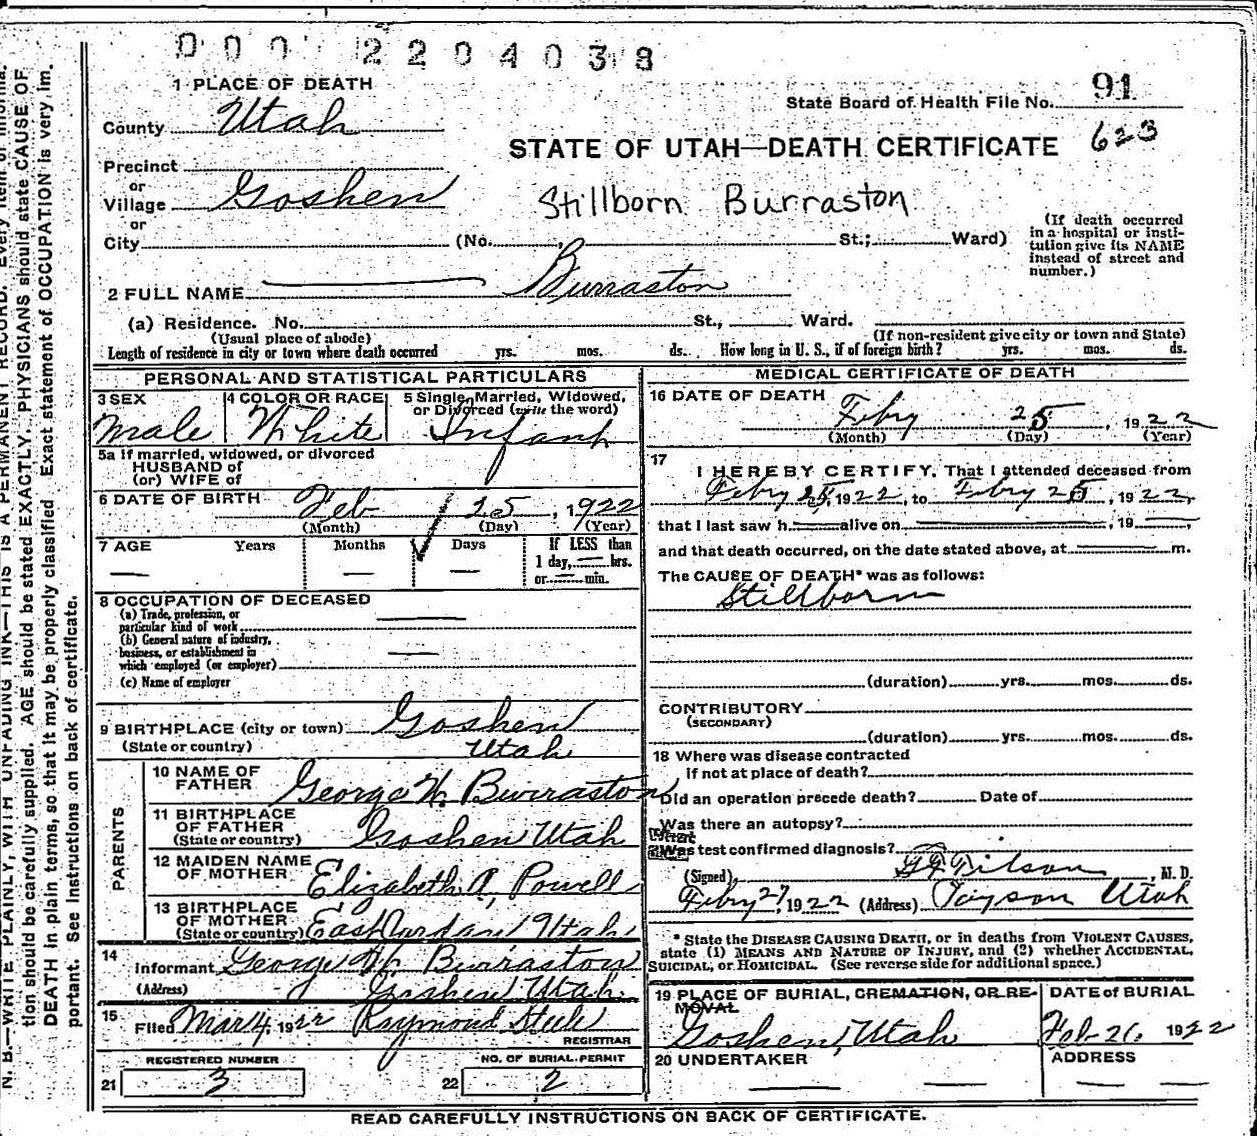 0 0 0 2 2 0 4 0 3 8
1 PLACE OF DEATH
State Board of Health File No. 91
County Utah
623
STATE OF UTAH—DEATH CERTIFICATE
Precinct
or
Village Goshen
Stillborn Burraston
or
City (No. St.; Ward)
(If death occurred
in a hospital or insti-
tution give its NAME
instead of street and
number.)
2 FULL NAME Burraston
(a) Residence. No. St., Ward.
(Usual place of abode) (If non-resident give city or town and State)
Length of residence in city or town where death occurred yrs. mos. ds. How long in U. S., if of foreign birth? yrs. mos. ds.
PERSONAL AND STATISTICAL PARTICULARS
3 SEX 4 COLOR OR RACE 5 Single, Married, Widowed,
or Divorced (write the word)
Male White Infant
5a If married, widowed, or divorced
HUSBAND of
(or) WIFE of
6 DATE OF BIRTH Feb 25, 1922
(Month) (Day) (Year)
7 AGE Years Months Days If LESS than
1 day, — hrs.
— — — or — min.
8 OCCUPATION OF DECEASED
(a) Trade, profession, or
particular kind of work
(b) General nature of industry,
business, or establishment in
which employed (or employer)
(c) Name of employer
9 BIRTHPLACE (city or town) Goshen
(State or country) Utah
PARENTS
10 NAME OF
FATHER George W. Burraston
11 BIRTHPLACE
OF FATHER Goshen Utah
(State or country)
12 MAIDEN NAME
OF MOTHER Elizabeth A. Powell
13 BIRTHPLACE
OF MOTHER
(State or country) East Jordan Utah
14 Informant George W. Burraston
(Address) Goshen Utah.
15 Filed Mar 4, 1922 Raymond Steele
REGISTRAR
REGISTERED NUMBER NO. OF BURIAL PERMIT
21 3 22 2
MEDICAL CERTIFICATE OF DEATH
16 DATE OF DEATH
Feby 25, 1922
(Month) (Day) (Year)
17
I HEREBY CERTIFY, That I attended deceased from
Feby 25, 1922, to Feby 25, 1922,
that I last saw h alive on , 19 ,
and that death occurred, on the date stated above, at m.
The CAUSE OF DEATH* was as follows:
Stillborn
(duration) yrs. mos. ds.
CONTRIBUTORY
(SECONDARY)
(duration) yrs. mos. ds.
18 Where was disease contracted
if not at place of death?
Did an operation precede death? Date of
Was there an autopsy?
What test confirmed diagnosis?
(Signed) , M. D.
Feby 27, 1922 (Address) Payson Utah
* State the DISEASE CAUSING DEATH, or in deaths from VIOLENT CAUSES,
state (1) MEANS AND NATURE OF INJURY, and (2) whether ACCIDENTAL,
SUICIDAL, or HOMICIDAL. (See reverse side for additional space.)
19 PLACE OF BURIAL, CREMATION, OR RE-
MOVAL
DATE of BURIAL
Goshen, Utah Feb 26, 1922
20 UNDERTAKER ADDRESS
READ CAREFULLY INSTRUCTIONS ON BACK OF CERTIFICATE.
N. B.—WRITE PLAINLY, WITH UNFADING INK—THIS IS A PERMANENT RECORD. Every item of informa-
tion should be carefully supplied. AGE should be stated EXACTLY. PHYSICIANS should state CAUSE OF
DEATH in plain terms, so that it may be properly classified. Exact statement of OCCUPATION is very im-
portant. See instructions on back of certificate.